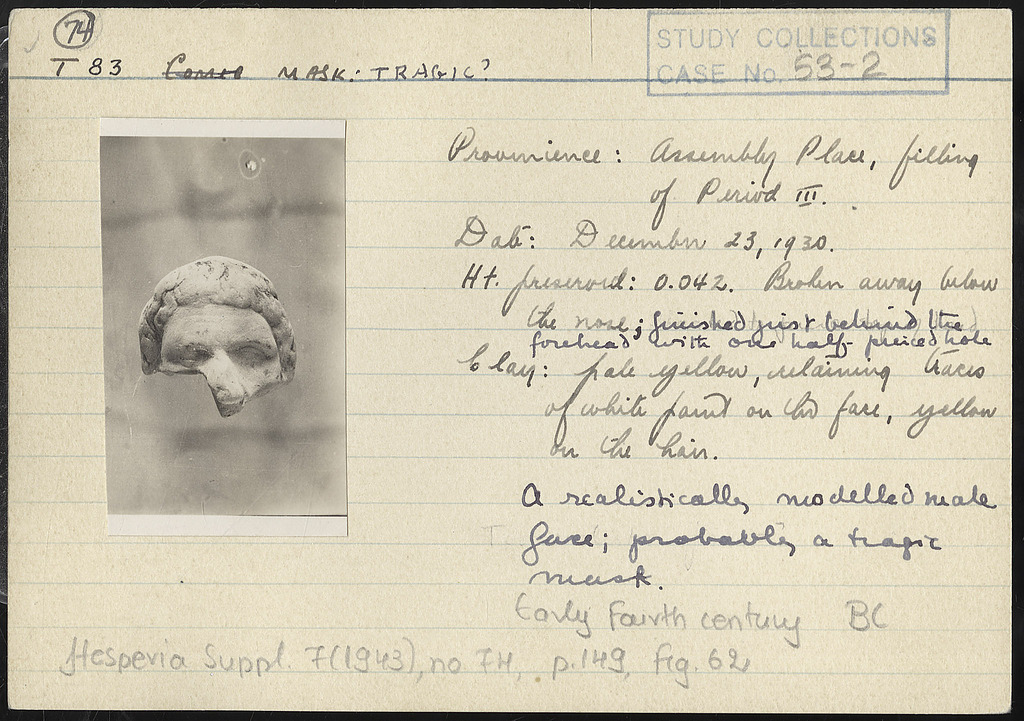 74
STUDY COLLECTIONS
CASE No. 53-2
T 83 Comic MASK: TRAGIC?
Provenience: Assembly Place, filling
of Period III.
Date: December 23, 1930.
Ht. preserved: 0.042. Broken away below
the nose; finished just behind the
forehead with one half-pierced hole
Clay: pale yellow, retaining traces
of white paint on the face, yellow
on the hair.
A realistically modelled male
face; probably a tragic
mask.
Early Fourth century BC
Hesperia Suppl. 7 (1943), no. 74, p. 149, fig. 62